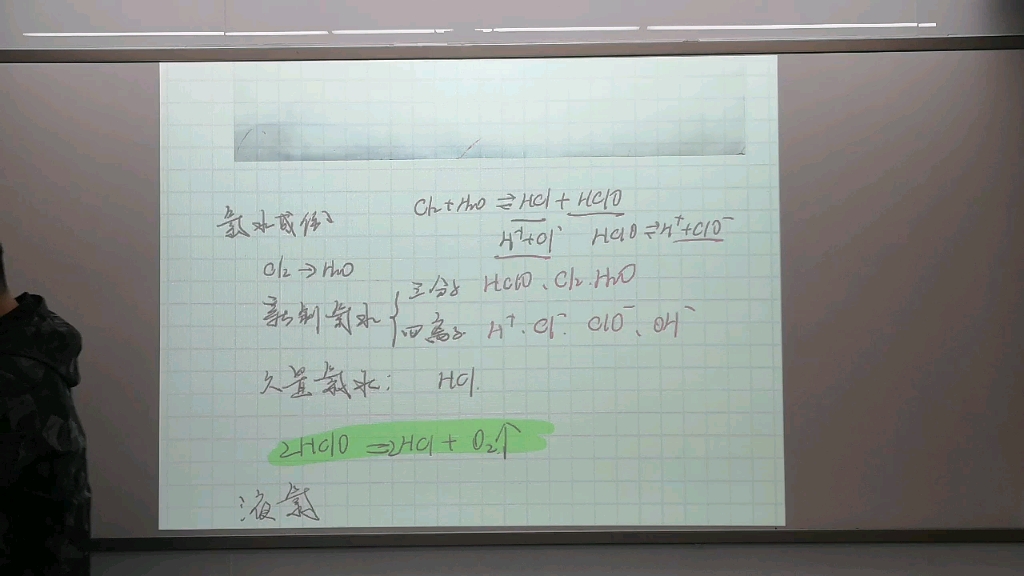 氯水成份
Cl2+H2O ⇌ HCl + HClO
H⁺+Cl⁻ HClO ⇌ H⁺+ClO⁻
Cl2 → H2O
新制氯水 { 三分子 HClO、Cl2、H2O
四离子 H⁺、Cl⁻、ClO⁻、OH⁻
久置氯水: HCl.
2HClO =2HCl + O2↑
液氯